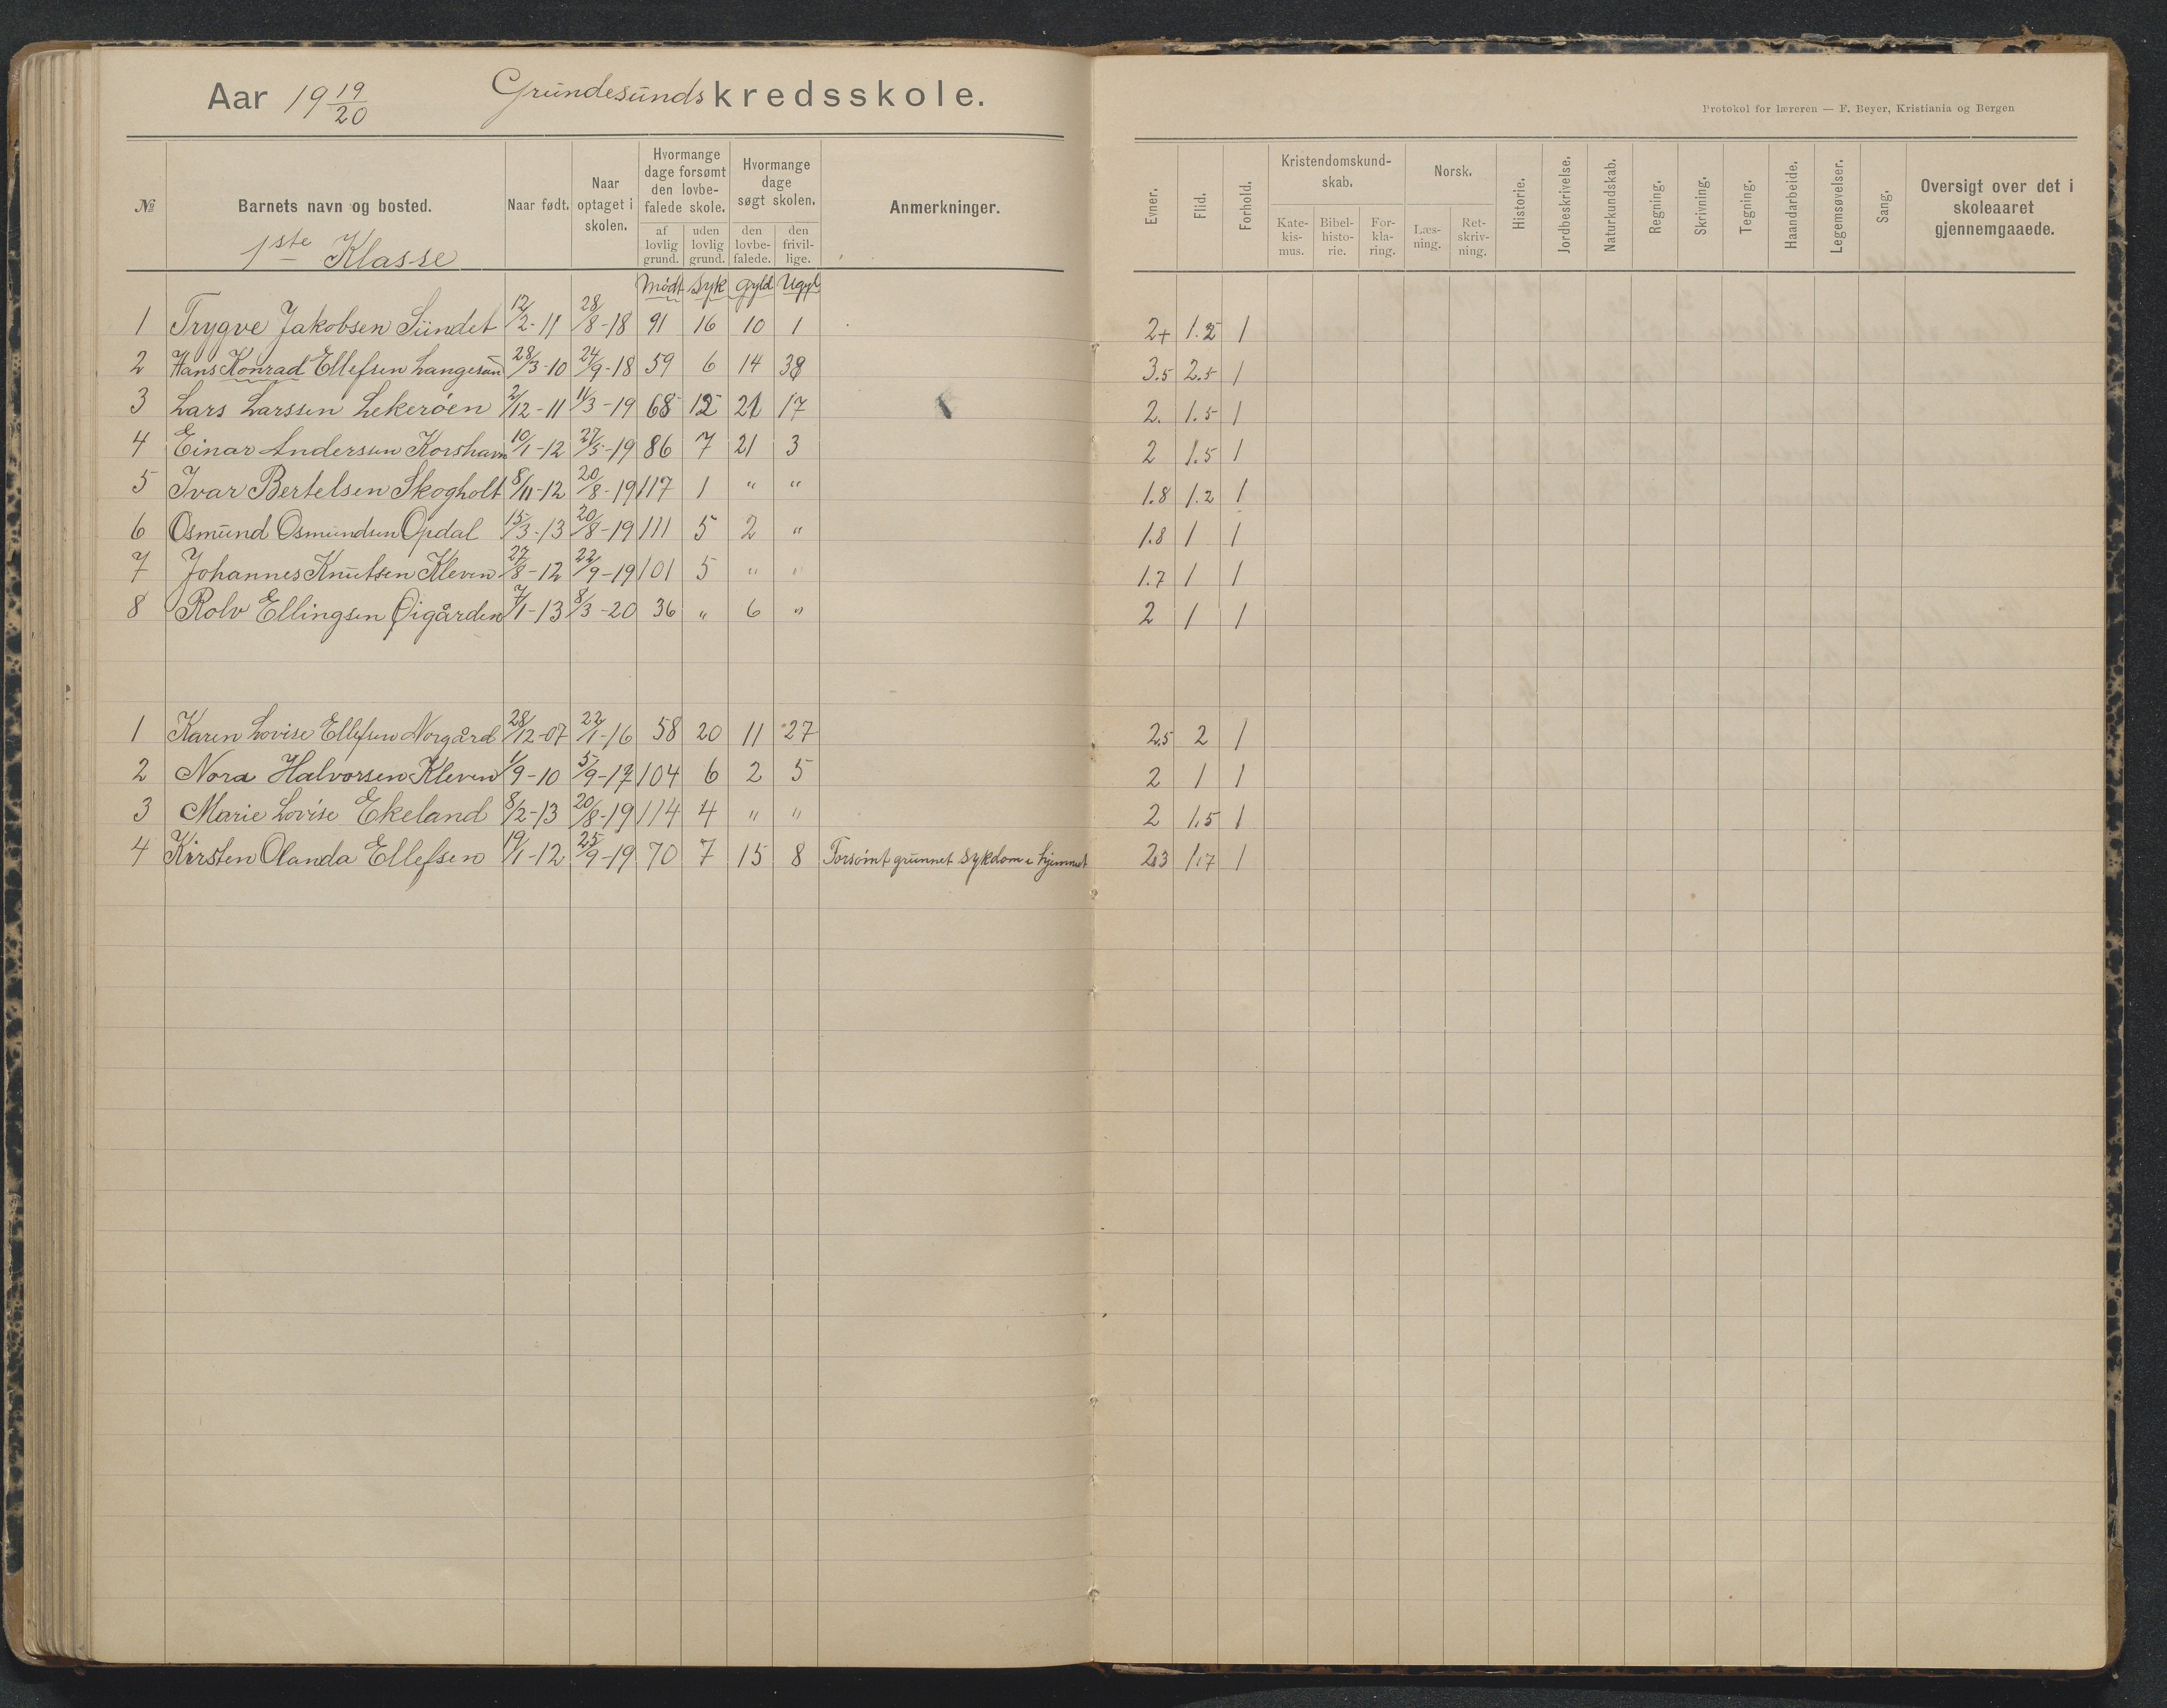 Aar 19 19/20 Grundesunds kredsskole.
Protokol for læreren — F. Beyer, Kristiania og Bergen
№ Barnets navn og bosted. Naar født. Naar optaget i skolen. Hvormange dage forsømt den lovbefalede skole. af lovlig grund. uden lovlig grund. Hvormange dage søgt skolen. den lovbefalede. den frivillige. Anmerkninger. Evner. Flid. Forhold. Kristendomskundskab. Katekismus. Bibelhistorie. Forklaring. Norsk. Læsning. Retskrivning. Historie. Jordbeskrivelse. Naturkundskab. Regning. Skrivning. Tegning. Haandarbeide. Legemsøvelser. Sang. Oversigt over det i skoleaaret gjennemgaaede.
1ste Klasse
Mødt Syk Gyld Ugyl
1 Trygve Jakobsen Sundet 12/2-11 28/8-18 91 16 10 1 2+ 1.2 1
2 Hans Konrad Ellefsen Langesun 28/3-10 24/9-18 59 6 14 38 3.5 2.5 1
3 Lars Larssen Lekerøen 2/12-11 11/3-19 68 12 21 17 2. 1.5 1
4 Einar Andersen Korshavn 10/1-12 27/5-19 86 7 21 3 2 1.5 1
5 Ivar Bertelsen Skogholt 8/11-12 20/8-19 117 1 " " 1.8 1.2 1
6 Osmund Osmundsen Opdal 15/3-13 20/8-19 111 5 2 " 1.8 1 1
7 Johannes Knutsen Kleven 27/8-12 22/9-19 101 5 " " 1.7 1 1
8 Rolv Ellingsen Øigården 7/1-13 8/3-20 36 " 6 " 2 1 1
1 Karen Lovise Ellefsen Norgård 28/12-07 22/1-16 58 20 11 27 2.5 2 1
2 Nora Halvorsen Kleven 1/9-10 5/9-17 104 6 2 5 2 1 1
3 Marie Lovise Ekeland 8/2-13 20/8-19 114 4 " " 2 1.5 1
4 Kirsten Olanda Ellefsen 19/1-12 25/9-19 70 7 15 8 Forsømt grunnet sykdom i hjemmet 2.3 1.7 1